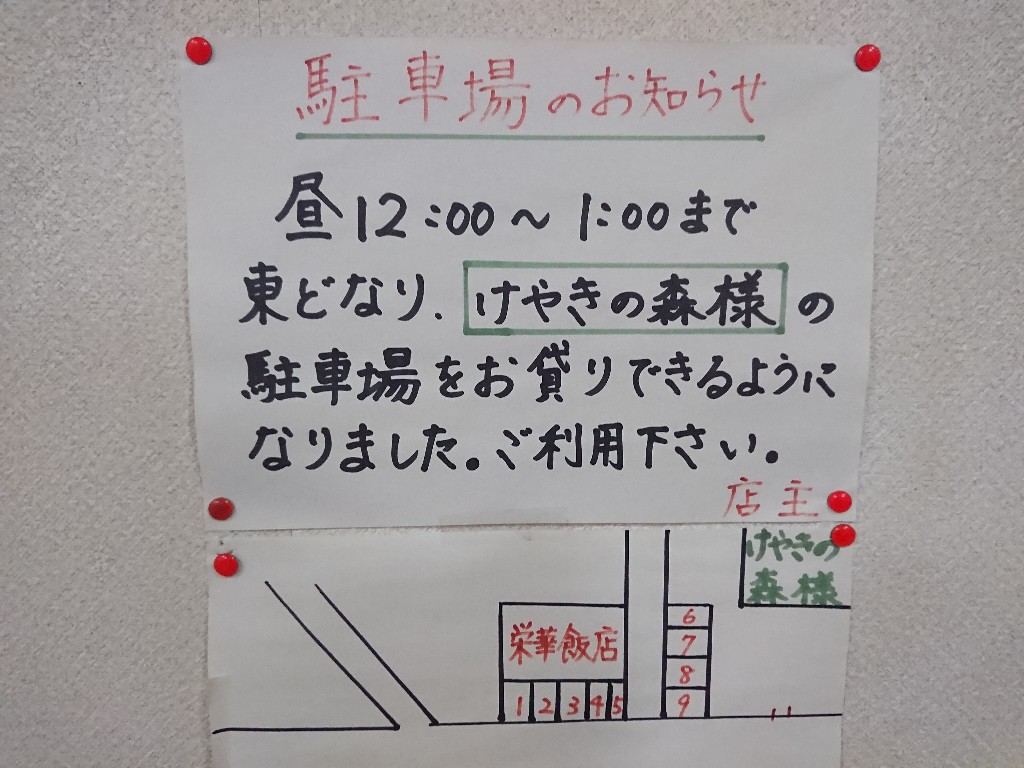 駐車場のお知らせ
昼12:00～1:00まで
東どなり、けやきの森様の
駐車場をお貸りできるように
なりました。ご利用下さい。
店主
けやきの
森様
栄華飯店
6
7
8
9
1 2 3 4 5